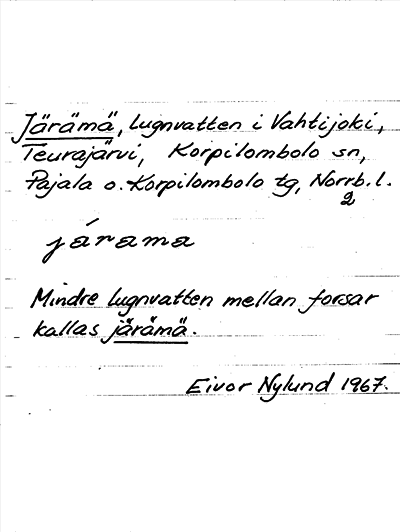 Järämä, Lugnvatten i Vahtijoki,
Teurajärvi, Korpilombolo sn,
Pajala o. Korpilombolo tg, Norrb. l.
2
járama
Mindre lugnvatten mellan forsar
kallas järämä.
Eivor Nylund 1967.